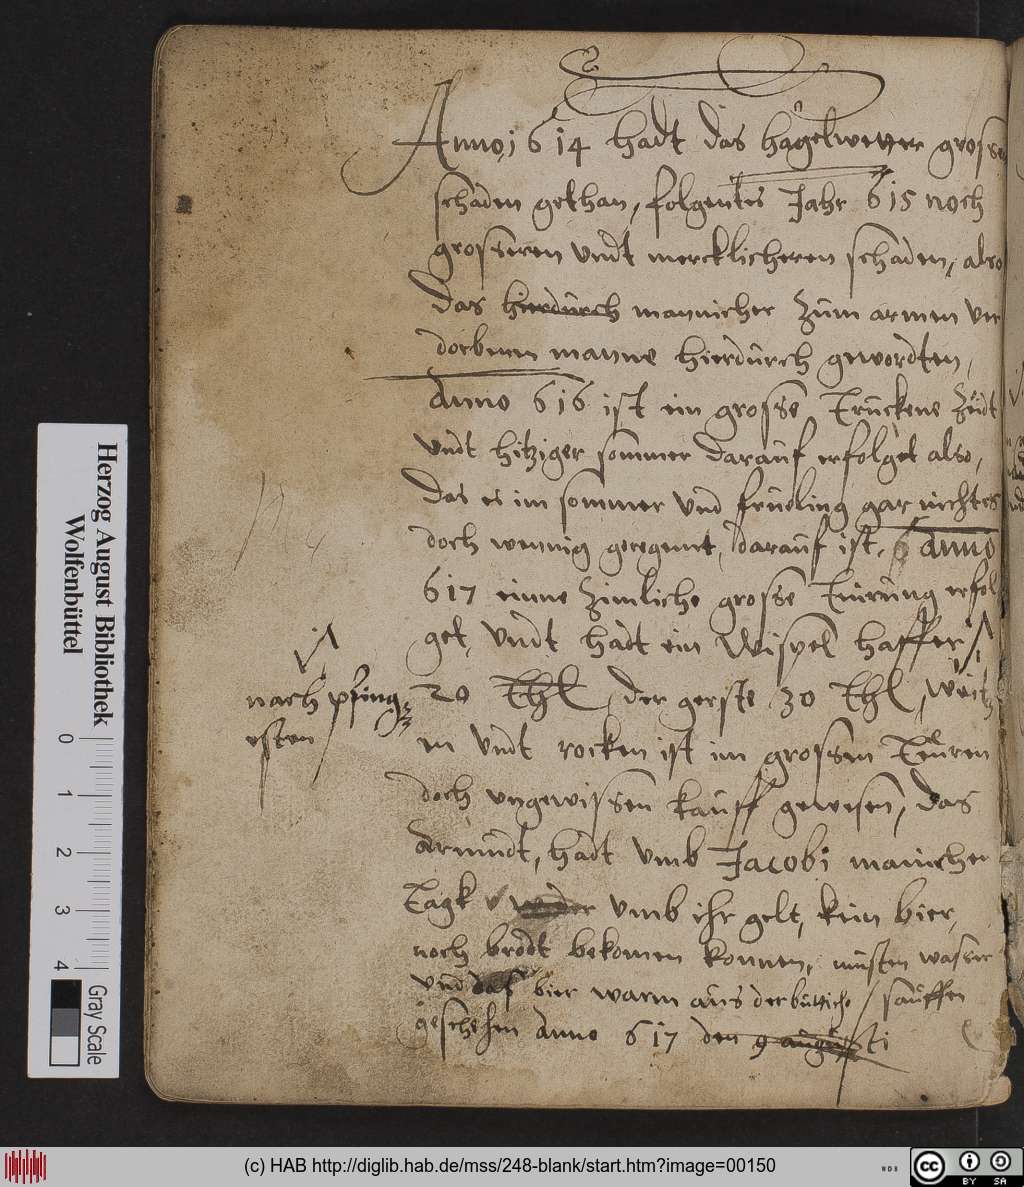 Anno 1614 hadt das hagelwetter grosse
schaden gethan, folgentes Jahr 615 noch
grosseren undt mercklicheren schaden, also
das hierdurch mannicher zum armen ver
dorbenen manne hierdurch gewordten,
Anno 616 ist ein grosse truckene Zeidt
undt hitziger sommer darauf erfolget also,
das es im sommer und fruеling gar nichtes
doch wennig geregent, darauf ist, anno
617 einne Zimliche grosse teurung erfol
get, undt hadt ein Wispel haffer
nach pfing
esten
20 thl, der gerste 30 thl, weitz
en undt rocken ist im grossen teuren
doch ungewissen kauff gewesen, das
armudt, hadt umb Jacobi mancher
tagk umb ihr gelt, kein bier,
noch brodt bekomen konnen, musten wasser
und das bier warm aus der buttiche sauffen
geschehen anno 617 den 9 augusti
Herzog August Bibliothek
Wolfenbüttel
0 1 2 3 4
Gray Scale
(c) HAB http://diglib.hab.de/mss/248-blank/start.htm?image=00150
WDB
cc BY SA